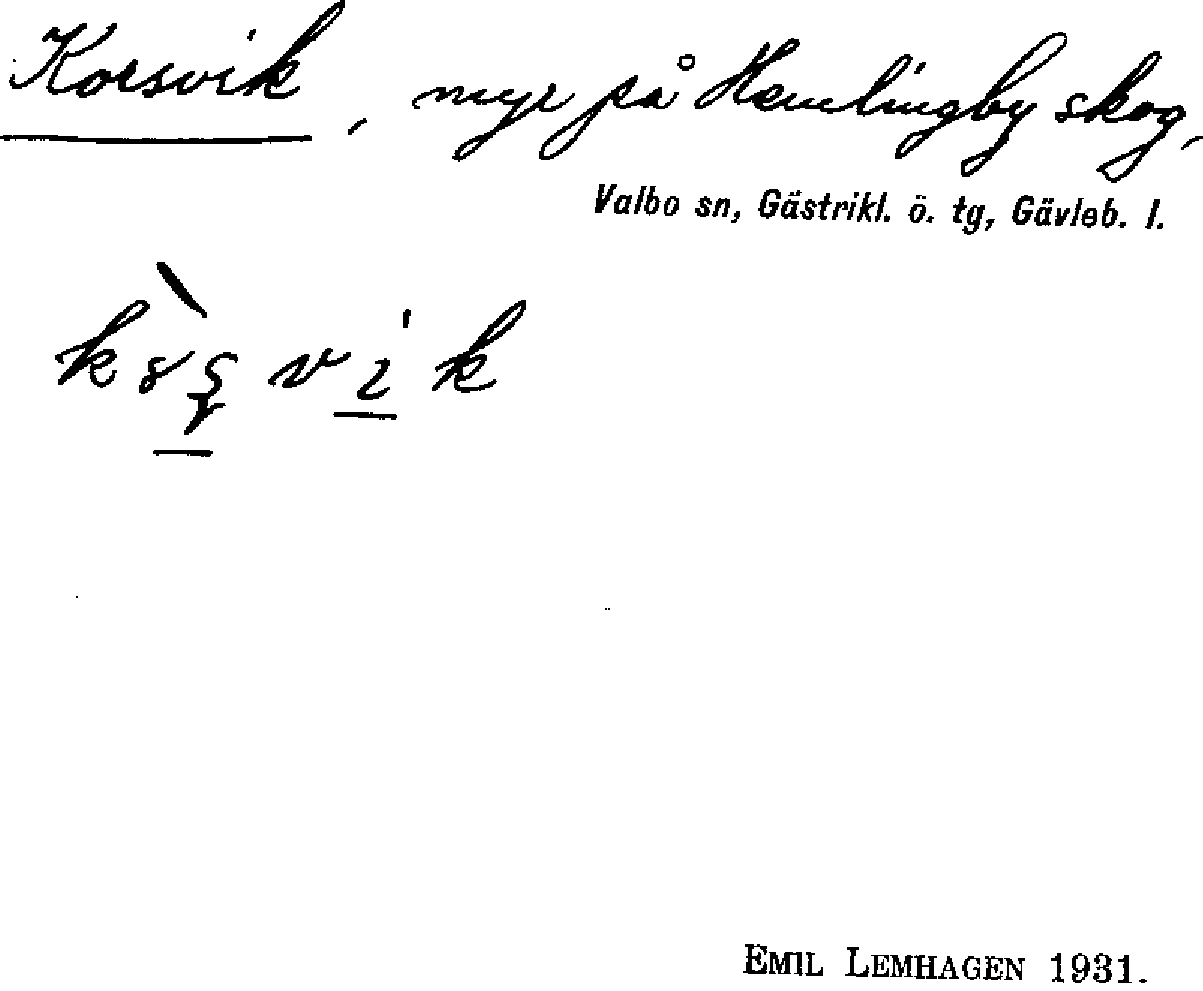 Korsvik, myr på Hemlingby skog,
Valbo sn, Gästrikl. ö. tg, Gävleb. l.
EMIL LEMHAGEN 1931.